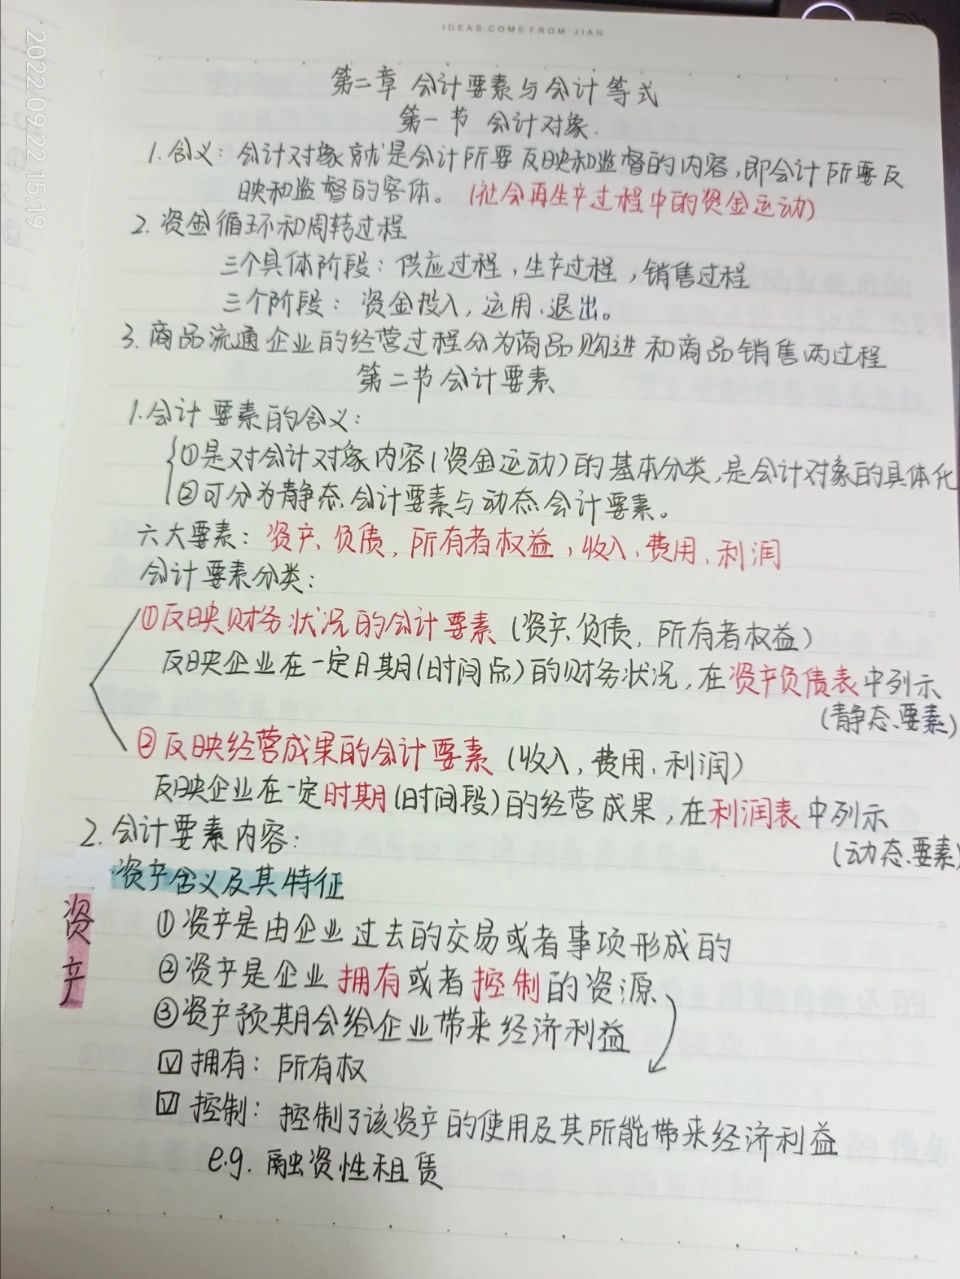 IDEAS COME FROM JIAN
2022.09.22 15:19
第二章 会计要素与会计等式
第一节 会计对象.
1. 含义: 会计对象就是会计所要反映和监督的内容,即会计所要反
映和监督的客体。 (社会再生产过程中的资金运动)
2. 资金循环和周转过程
三个具体阶段: 供应过程,生产过程,销售过程
三个阶段: 资金投入,运用、退出。
3. 商品流通企业的经营过程分为商品购进和商品销售两过程
第二节 会计要素
1. 会计要素的含义:
①是对会计对象内容(资金运动)的基本分类,是会计对象的具体化
②可分为静态会计要素与动态会计要素。
六大要素: 资产、负债,所有者权益,收入、费用、利润
会计要素分类:
①反映财务状况的会计要素 (资产、负债,所有者权益)
反映企业在一定日期(时间点)的财务状况,在资产负债表中列示
(静态要素)
②反映经营成果的会计要素 (收入,费用、利润)
反映企业在一定时期(时间段)的经营成果,在利润表中列示
(动态要素)
2. 会计要素内容:
资产含义及其特征
资产
①资产是由企业过去的交易或者事项形成的
②资产是企业拥有或者控制的资源、
③资产预期会给企业带来经济利益
拥有: 所有权
控制: 控制了该资产的使用及其所能带来经济利益
e.g. 融资性租赁